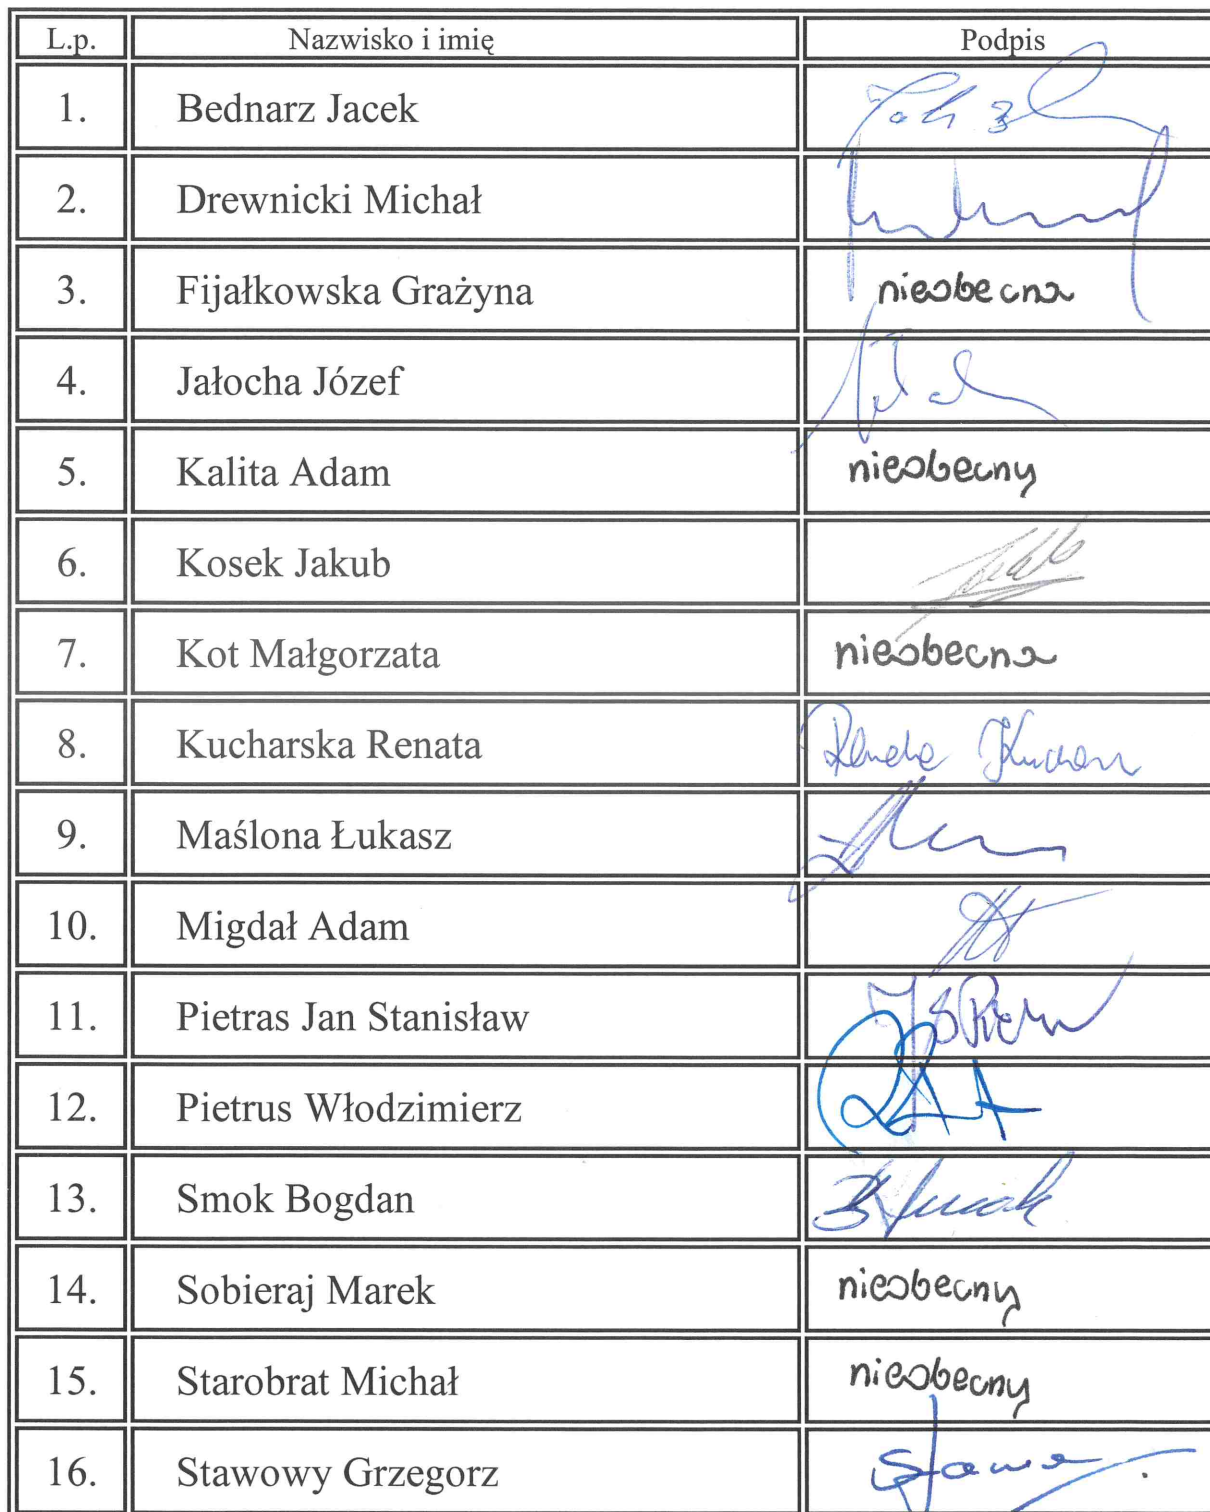 L.p. Nazwisko i imię Podpis
1. Bednarz Jacek
2. Drewnicki Michał
3. Fijałkowska Grażyna nieobecna
4. Jałocha Józef
5. Kalita Adam nieobecny
6. Kosek Jakub
7. Kot Małgorzata nieobecna
8. Kucharska Renata
9. Maślona Łukasz
10. Migdał Adam
11. Pietras Jan Stanisław
12. Pietrus Włodzimierz
13. Smok Bogdan
14. Sobieraj Marek nieobecny
15. Starobrat Michał nieobecny
16. Stawowy Grzegorz